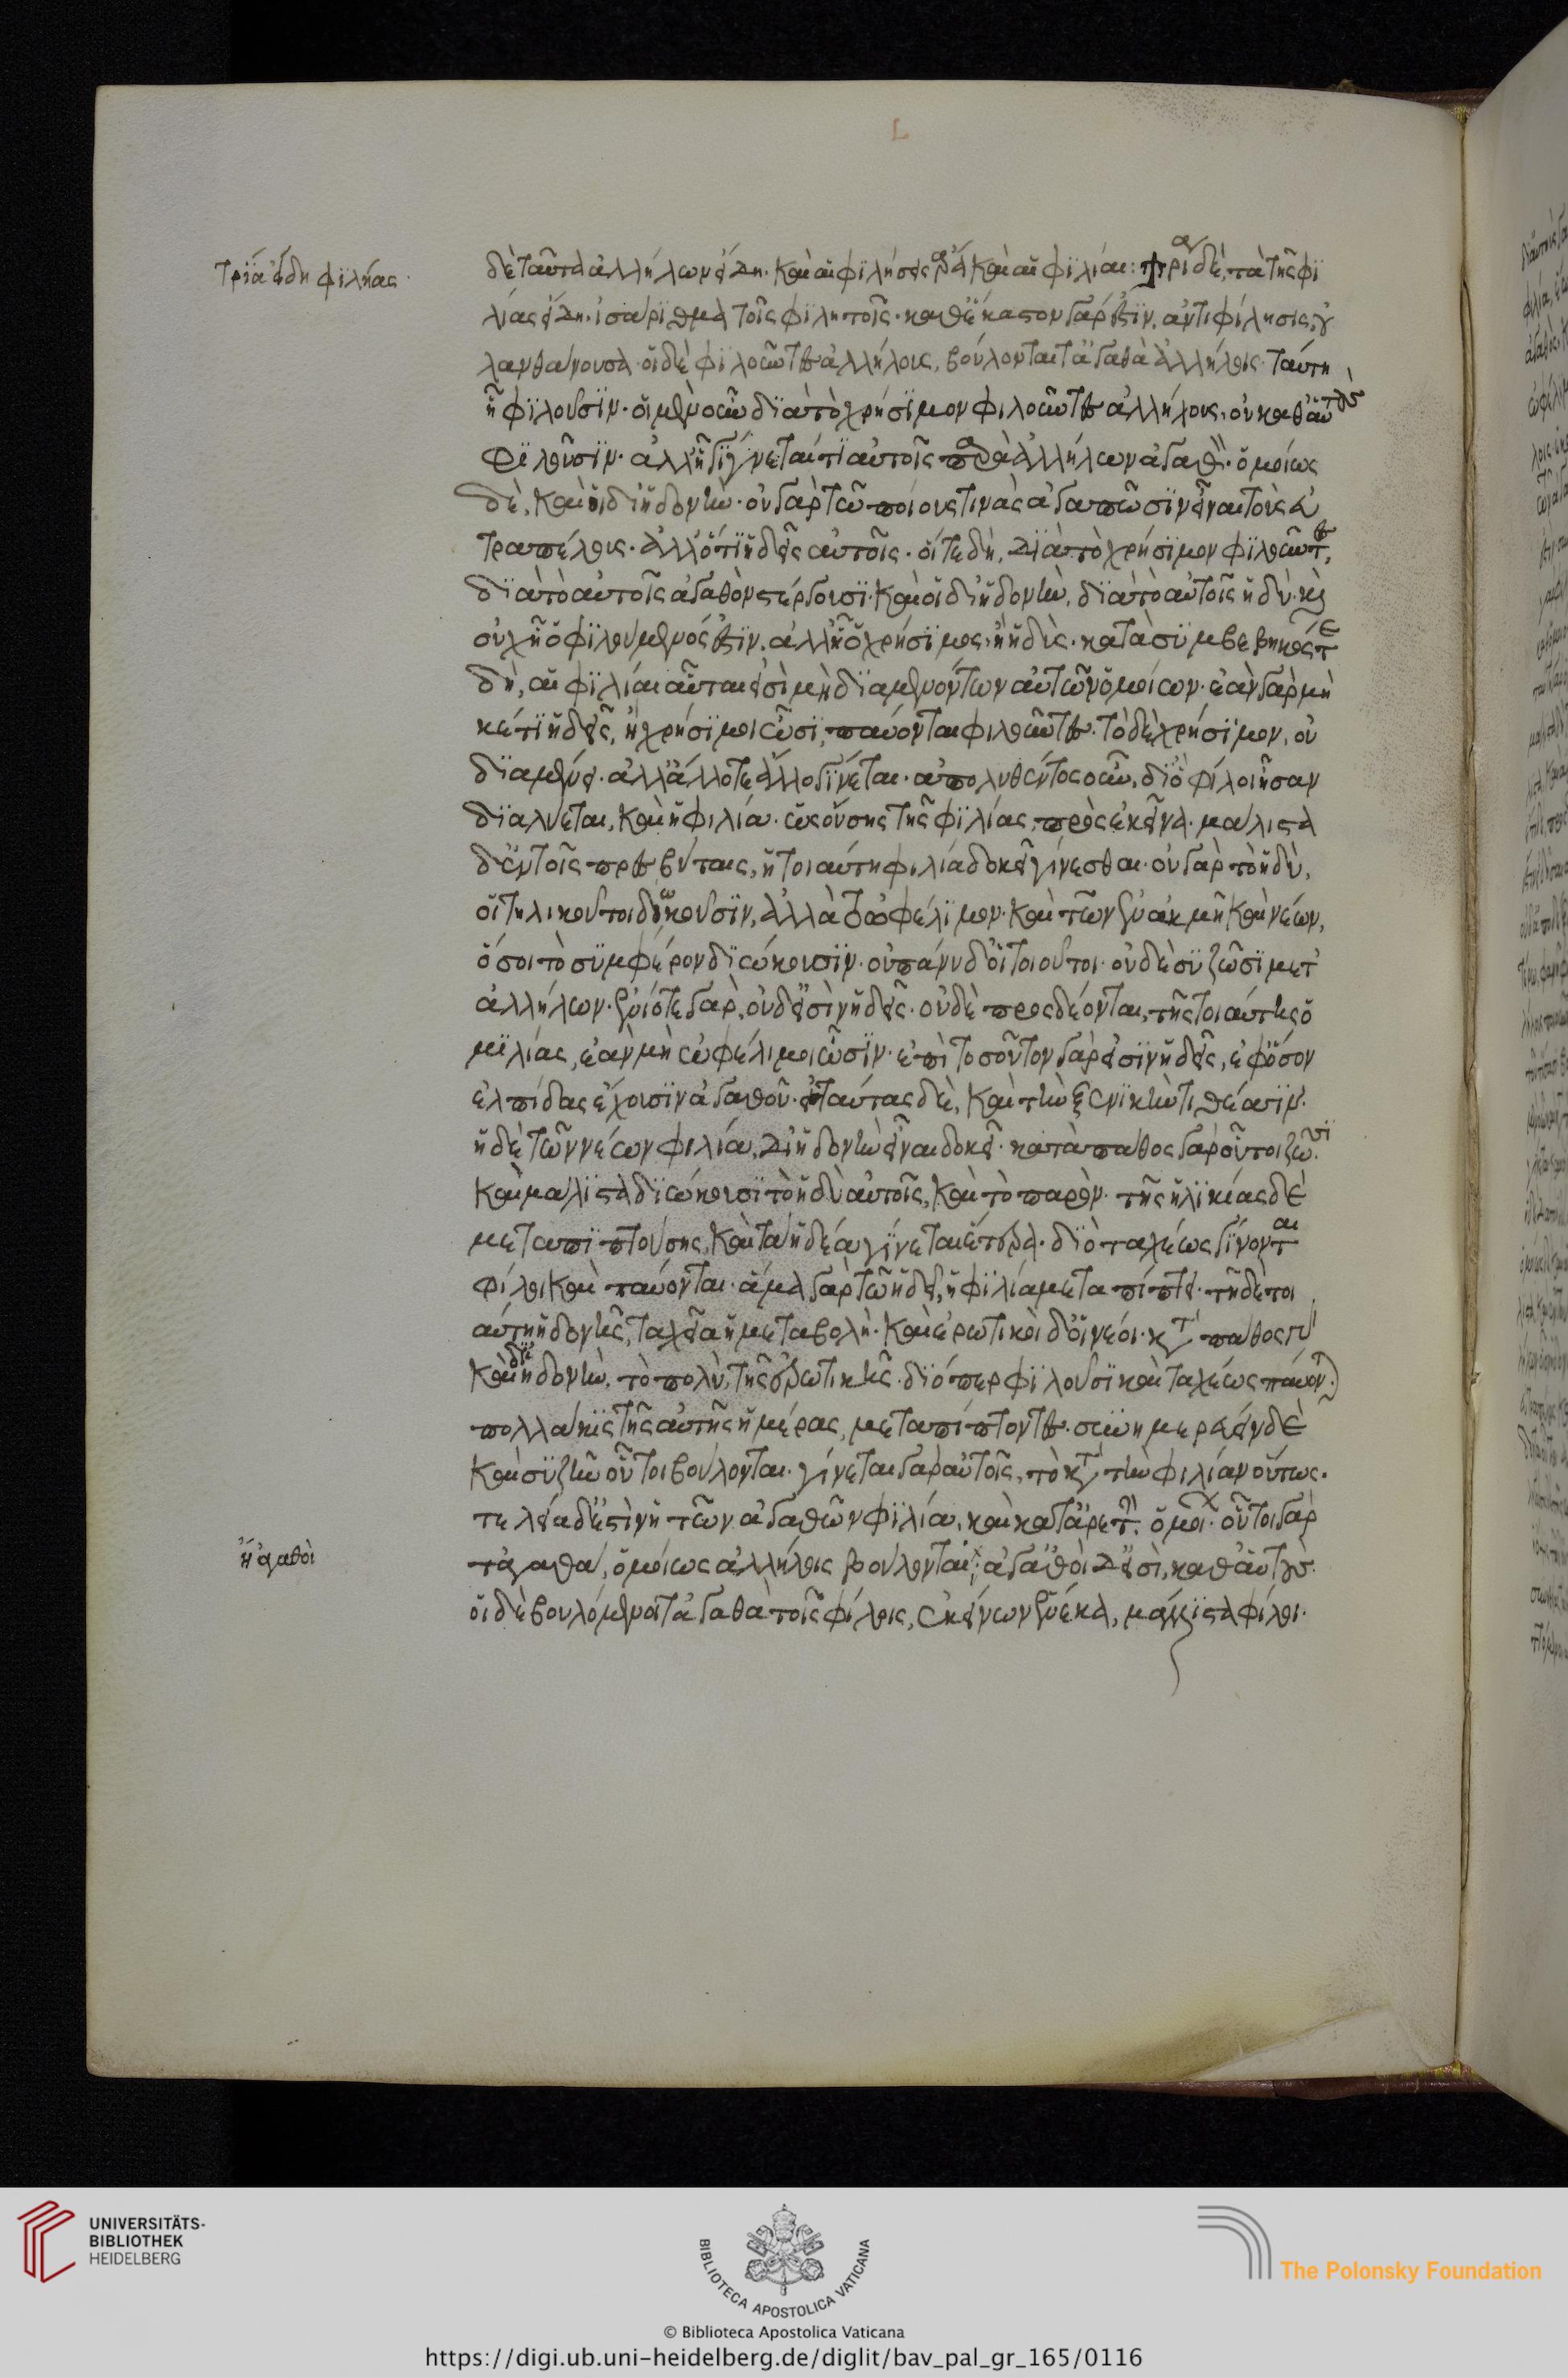 τρία εἴδη φιλίας
δὲ ταῦτα ἀλλήλων εἴδη. καὶ αἱ φιλήσεις ἄρα καὶ αἱ φιλίαι: τρία δὲ, τὰ τῆς φι
λίας εἴδη. ἰσάριθμα τοῖς φιλητοῖς. καθ' ἕκαστον γάρ ἐστιν, ἀντιφίλησις, οὐ
λανθάνουσα. οἱ δὲ φιλοῦντες ἀλλήλους, βούλονται τἀγαθὰ ἀλλήλοις. ταύτη
ᾗ φιλοῦσιν. οἱ μὲν οὖν διὰ τὸ χρήσιμον φιλοῦντες ἀλλήλους, οὐ καθ' αὑτοὺς
φιλοῦσιν. ἀλλ' ᾗ γίγνεταί τι αὐτοῖς παρὰ ἀλλήλων ἀγαθόν. ὁμοίως
δὲ, καὶ οἱ δι' ἡδονήν. οὐ γὰρ τῷ ποιούς τινας ἀγαπῶσιν εἶναι τοὺς εὐ
τραπέλους. ἀλλ' ὅτι ἡδεῖς αὐτοῖς. οἵ τε δὴ, διὰ τὸ χρήσιμον φιλοῦντες,
διὰ τὸ αὐτοῖς ἀγαθὸν στέργουσι. καὶ οἱ δι' ἡδονὴν, διὰ τὸ αὐτοῖς ἡδύ. καὶ
οὐχ ᾗ ὁ φιλούμενός ἐστιν. ἀλλ' ᾗ χρήσιμος. ἢ ἡδύς. κατὰ συμβεβηκός τε
δὴ, αἱ φιλίαι αὗταί εἰσι μὴ διαμενόντων αὐτῶν ὁμοίων. ἐὰν γὰρ μη
κέτι ἡδεῖς, ἢ χρήσιμοι ὦσι, παύονται φιλοῦντες. τὸ δὲ χρήσιμον, οὐ
διαμένει. ἀλλ' ἄλλοτε ἄλλο γίνεται. ἀπολυθέντος οὖν, δι' ὃ φίλοι ἦσαν
διαλύεται, καὶ ἡ φιλία. ὡς οὔσης τῆς φιλίας, πρὸς ἐκεῖνα. μάλιστα
δ' ἐν τοῖς πρεσβύταις, ἡ τοιαύτη φιλία δοκεῖ γίνεσθαι. οὐ γὰρ τὸ ἡδὺ,
οἱ τηλικοῦτοι διώκουσιν, ἀλλὰ τὸ ὠφέλιμον. καὶ τῶν ἐν ἀκμῇ καὶ νέων,
ὅσοι τὸ συμφέρον διώκουσιν. οὐ πάνυ δ' οἱ τοιοῦτοι. οὐδὲ συζῶσι μετ'
ἀλλήλων. ἐνίοτε γὰρ, οὐδ' εἰσὶν ἡδεῖς. οὐδὲ προςδέονται, τῆς τοιαύτης ὁ
μιλίας, ἐὰν μὴ ὠφέλιμοι ὦσιν. ἐπὶ τοσοῦτον γάρ εἰσιν ἡδεῖς, ἐφ' ὅσον
ἐλπίδας ἔχουσιν ἀγαθοῦ. εἰς ταύτας δὲ, καὶ τὴν ξενικὴν τιθέασιν.
ἡ δὲ τῶν νέων φιλία, δι' ἡδονὴν εἶναι δοκεῖ. κατὰ πάθος γὰρ οὗτοι ζῶσι.
καὶ μάλιστα διώκουσι τὸ ἡδὺ αὐτοῖς, καὶ τὸ παρόν. τῆς ἡλικίας δὲ
μεταπιπτούσης, καὶ τὰ ἡδέα γίνεται ἕτερα. διὸ ταχέως γίνονται
φίλοι καὶ παύονται. ἅμα γὰρ τῷ ἡδεῖ, ἡ φιλία μεταπίπτει. τῆς δὲ τοι
αύτης ἡδονῆς, ταχεῖα ἡ μεταβολή. καὶ ἐρωτικοὶ δ' οἱ νέοι. κατὰ πάθος γὰρ
καὶ δι' ἡδονὴν, τὸ πολὺ, τῆς ἐρωτικῆς. διόπερ φιλοῦσι καὶ ταχέως παύονται
πολλάκις τῆς αὐτῆς ἡμέρας, μεταπίπτοντες. συνημερεύειν δὲ
καὶ συζῆν οὗτοι βούλονται. γίνεται γὰρ αὐτοῖς, τὸ κατὰ τὴν φιλίαν οὕτως.
τελεία δ' ἐστὶν ἡ τῶν ἀγαθῶν φιλία, καὶ κατ' ἀρετὴν ὁμοίων. οὗτοι γὰρ
τἀγαθὰ, ὁμοίως ἀλλήλοις βούλονται, ᾗ ἀγαθοί. ἀγαθοὶ δ' εἰσὶ, καθ' αὑτούς.
οἱ δὲ βουλόμενοι τἀγαθὰ τοῖς φίλοις, ἐκείνων ἕνεκα, μάλιστα φίλοι.
ᾗ ἀγαθοὶ
UNIVERSITÄTS-
BIBLIOTHEK
HEIDELBERG
BIBLIOTECA APOSTOLICA VATICANA
The Polonsky Foundation
© Biblioteca Apostolica Vaticana
https://digi.ub.uni-heidelberg.de/diglit/bav_pal_gr_165/0116